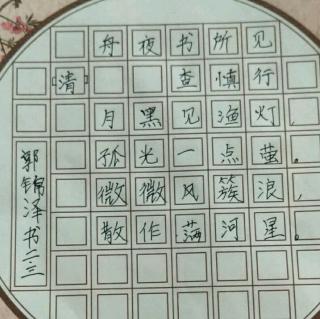 舟夜书所见
[清] 查慎行
月黑见渔灯,
孤光一点萤。
微微风簇浪,
散作满河星。
郭锦泽书二.三